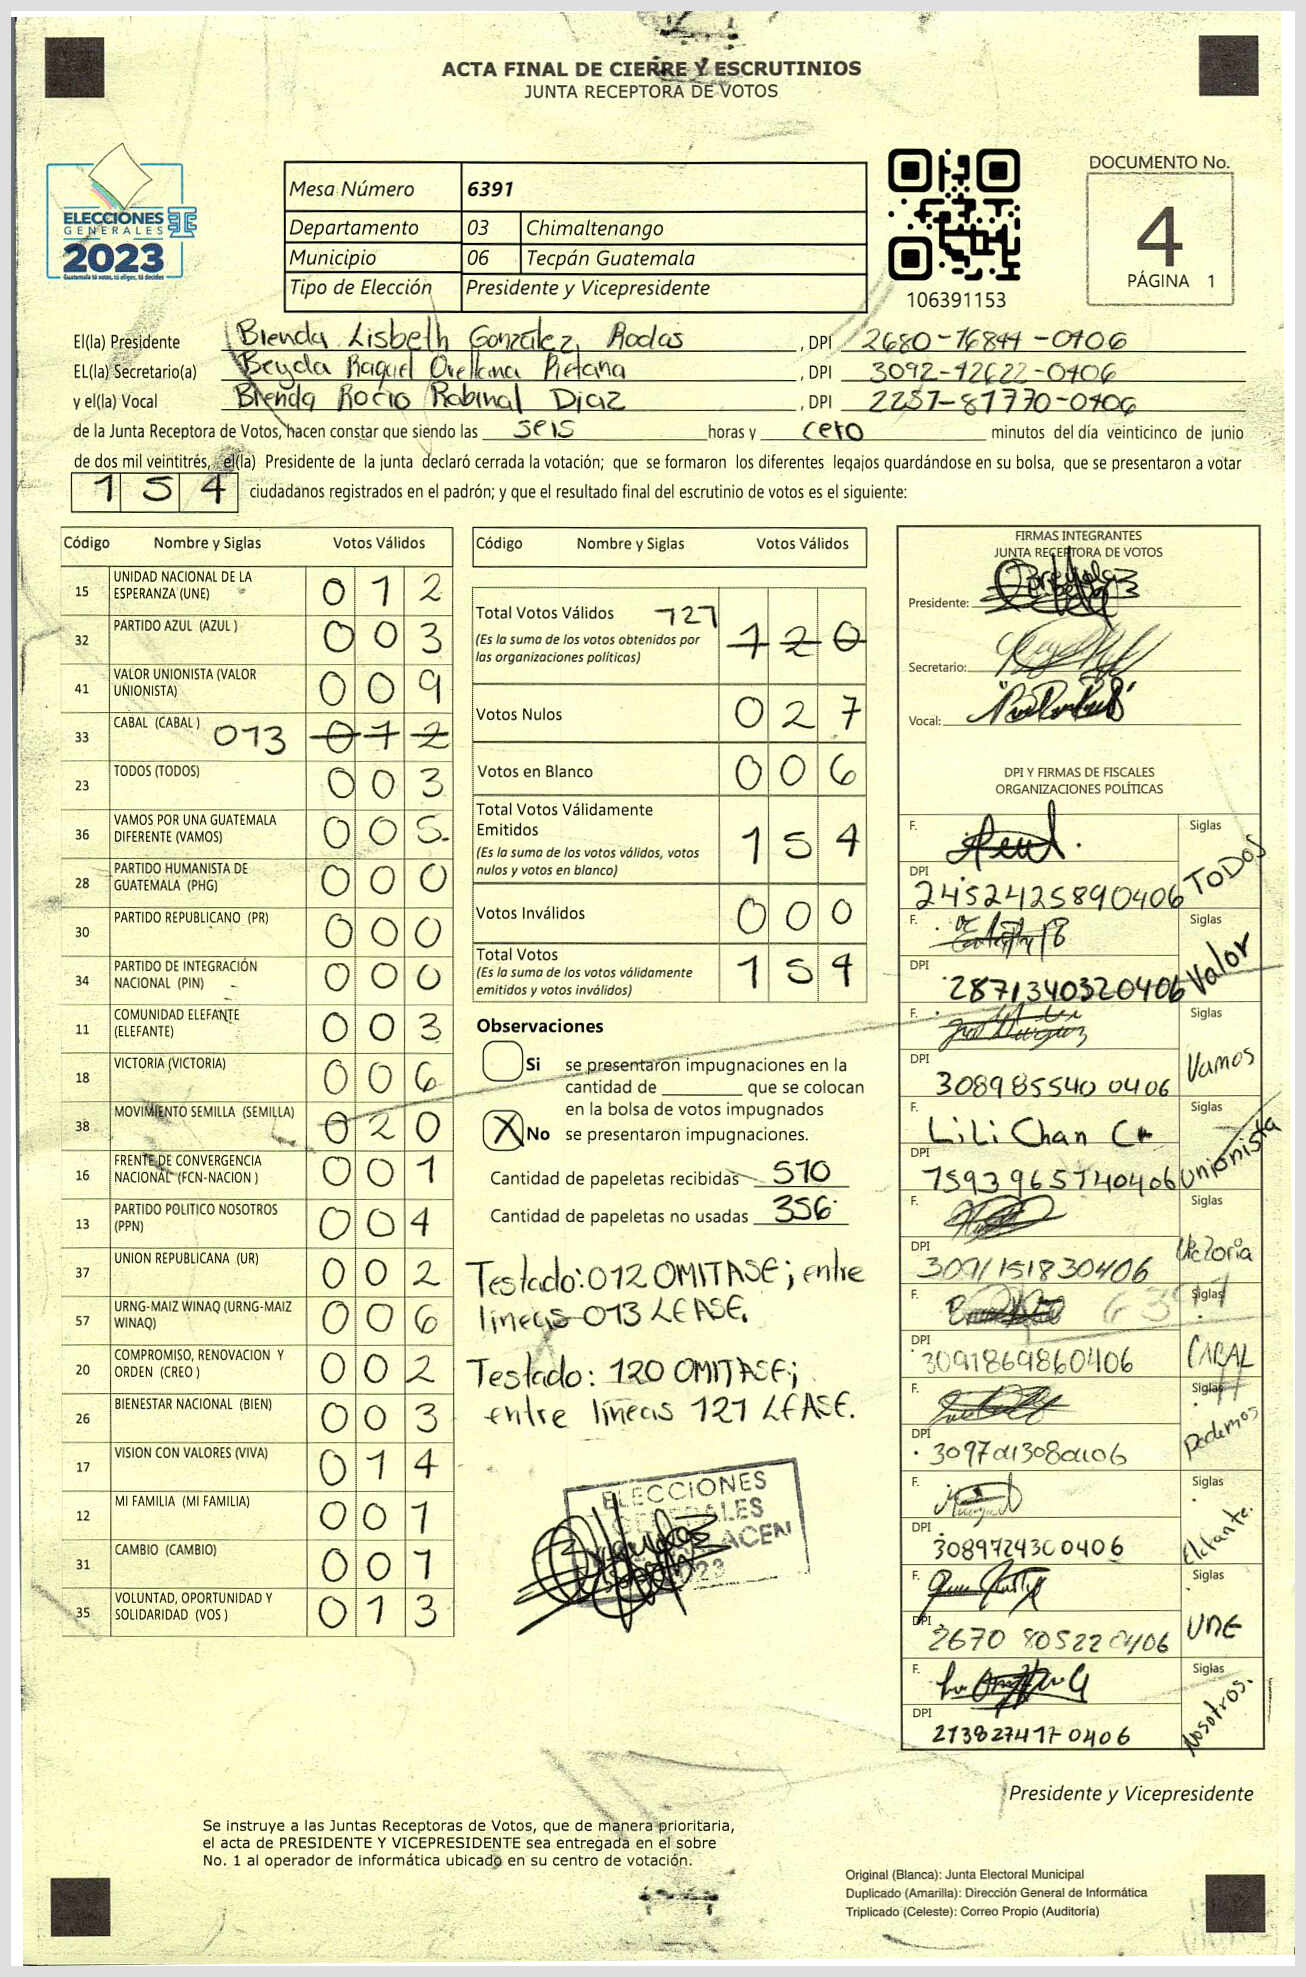 ACTA FINAL DE CIERRE Y ESCRUTINIOS
JUNTA RECEPTORA DE VOTOS
ELECCIONES
GENERALES
2023
Guatemala tú votas, tú eliges, tú decides
Mesa Número 6391
Departamento 03 Chimaltenango
Municipio 06 Tecpán Guatemala
Tipo de Elección Presidente y Vicepresidente
106391153
DOCUMENTO No.
4
PÁGINA 1
El(la) Presidente Brenda Lisbeth González Rodas, DPI 2680-76844-0406
EL(la) Secretario(a) Beyda Raquel Orellana, DPI 3092-42622-0406
y el(la) Vocal Brenda Rocio Rabinal Diaz, DPI 2257-81770-0406
de la Junta Receptora de Votos, hacen constar que siendo las seis horas y cero minutos del día veinticinco de junio
de dos mil veintitrés, el(la) Presidente de la junta declaró cerrada la votación; que se formaron los diferentes legajos guardándose en su bolsa, que se presentaron a votar
154 ciudadanos registrados en el padrón; y que el resultado final del escrutinio de votos es el siguiente:
Código Nombre y Siglas Votos Válidos
15 UNIDAD NACIONAL DE LA ESPERANZA (UNE) 012
32 PARTIDO AZUL (AZUL ) 003
41 VALOR UNIONISTA (VALOR UNIONISTA) 009
33 CABAL (CABAL ) 013 012
23 TODOS (TODOS) 003
36 VAMOS POR UNA GUATEMALA DIFERENTE (VAMOS) 005
28 PARTIDO HUMANISTA DE GUATEMALA (PHG) 000
30 PARTIDO REPUBLICANO (PR) 000
34 PARTIDO DE INTEGRACIÓN NACIONAL (PIN) 000
11 COMUNIDAD ELEFANTE (ELEFANTE) 003
18 VICTORIA (VICTORIA) 006
38 MOVIMIENTO SEMILLA (SEMILLA) 020
16 FRENTE DE CONVERGENCIA NACIONAL (FCN-NACION ) 001
13 PARTIDO POLITICO NOSOTROS (PPN) 004
37 UNION REPUBLICANA (UR) 002
57 URNG-MAIZ WINAQ (URNG-MAIZ WINAQ) 006
20 COMPROMISO, RENOVACION Y ORDEN (CREO ) 002
26 BIENESTAR NACIONAL (BIEN) 003
17 VISION CON VALORES (VIVA) 014
12 MI FAMILIA (MI FAMILIA) 001
31 CAMBIO (CAMBIO) 001
35 VOLUNTAD, OPORTUNIDAD Y SOLIDARIDAD (VOS ) 013
Código Nombre y Siglas Votos Válidos
Total Votos Válidos 121 120
(Es la suma de los votos obtenidos por
las organizaciones políticas)
Votos Nulos 027
Votos en Blanco 006
Total Votos Válidamente
Emitidos 154
(Es la suma de los votos válidos, votos
nulos y votos en blanco)
Votos Inválidos 000
Total Votos 154
(Es la suma de los votos válidamente
emitidos y votos inválidos)
Observaciones
Si se presentaron impugnaciones en la
cantidad de ________ que se colocan
en la bolsa de votos impugnados
X No se presentaron impugnaciones.
Cantidad de papeletas recibidas 510
Cantidad de papeletas no usadas 356
Testado: 012 OMITASE; entre
lineas 013 LEASE.
Testado: 120 OMITASE;
entre líneas 121 LEASE.
ELECCIONES
GENERALES
2023
FIRMAS INTEGRANTES
JUNTA RECEPTORA DE VOTOS
Presidente:
Secretario:
Vocal:
DPI Y FIRMAS DE FISCALES
ORGANIZACIONES POLÍTICAS
F. Siglas
DPI 2452425890406 TODOS
F. Siglas
DPI 2871340320406 Valor
F. Siglas
DPI 3089855400406 Vamos
F. LiLi Chan Siglas
DPI 1593965740406 Unionista
F. Siglas
DPI 3091151830406 Victoria
F. 6391 Siglas
DPI 3091869860406 CABAL
F. Siglas
DPI Podemos
F. Siglas
DPI 3089724300406 Elefante.
F. Siglas
DPI 2670805220406 UNE
F. Siglas
DPI 2138274170406 Nosotros.
Presidente y Vicepresidente
Se instruye a las Juntas Receptoras de Votos, que de manera prioritaria,
el acta de PRESIDENTE Y VICEPRESIDENTE sea entregada en el sobre
No. 1 al operador de informática ubicado en su centro de votación.
Original (Blanca): Junta Electoral Municipal
Duplicado (Amarilla): Dirección General de Informática
Triplicado (Celeste): Correo Propio (Auditoría)